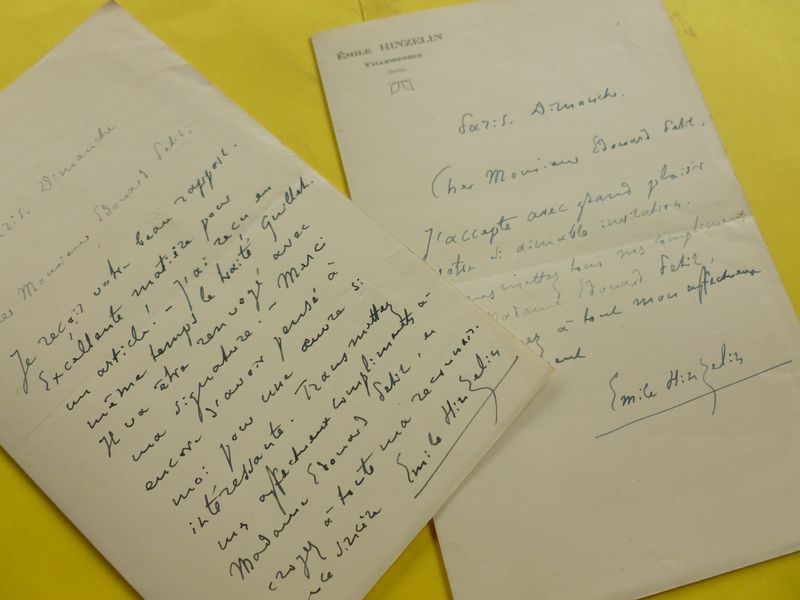 Paris. Dimanche
Cher Monsieur Edouard Petit,
Je reçois votre beau rapport.
Excellente matière pour
un article! – J'ai reçu en
même temps le traité Guillet.
Il va être renvoyé avec
ma signature. – Merci
encore d'avoir pensé à
moi pour une œuvre si
intéressante. Transmettez
mes affectueux compliments à
Madame Edouard Petit, et
croyez à toute ma reconnais-
ce sincère
Emile Hinzelin
ÉMILE HINZELIN
VILLEMOMBLE
(SEINE)
Paris. Dimanche.
Cher Monsieur Edouard Petit,
J'accepte avec grand plaisir
votre si aimable invitation.
mettez tous mes compliments
Madame Edouard Petit,
ez à tout mon affectueux
ment
Emile Hinzelin